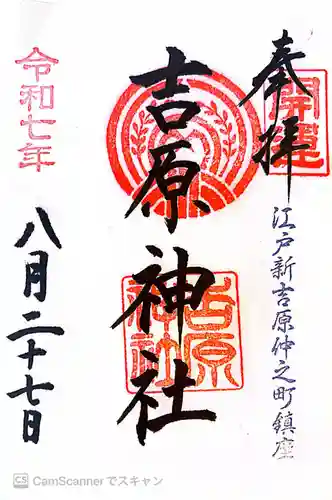 奉拝
開運
江戸新吉原仲之町鎮座
吉原神社
吉原神社
令和七年
八月二十七日
CS CamScannerでスキャン